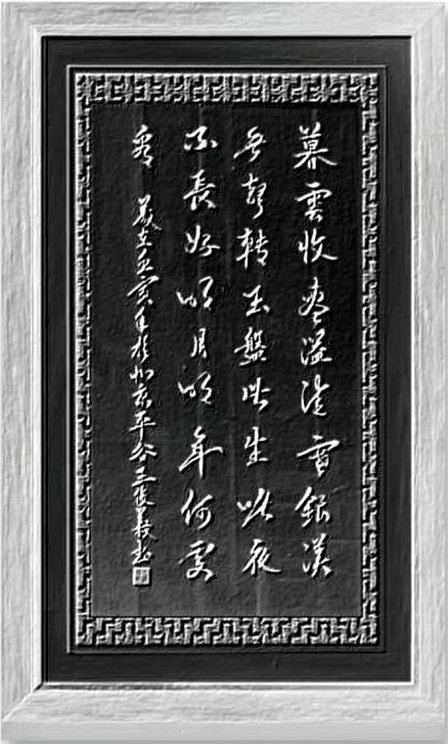 暮雲收盡溢清寒銀漢
無聲轉玉盤此生此夜
不長好明月明年何處
看 歲在寅年於北京平谷書